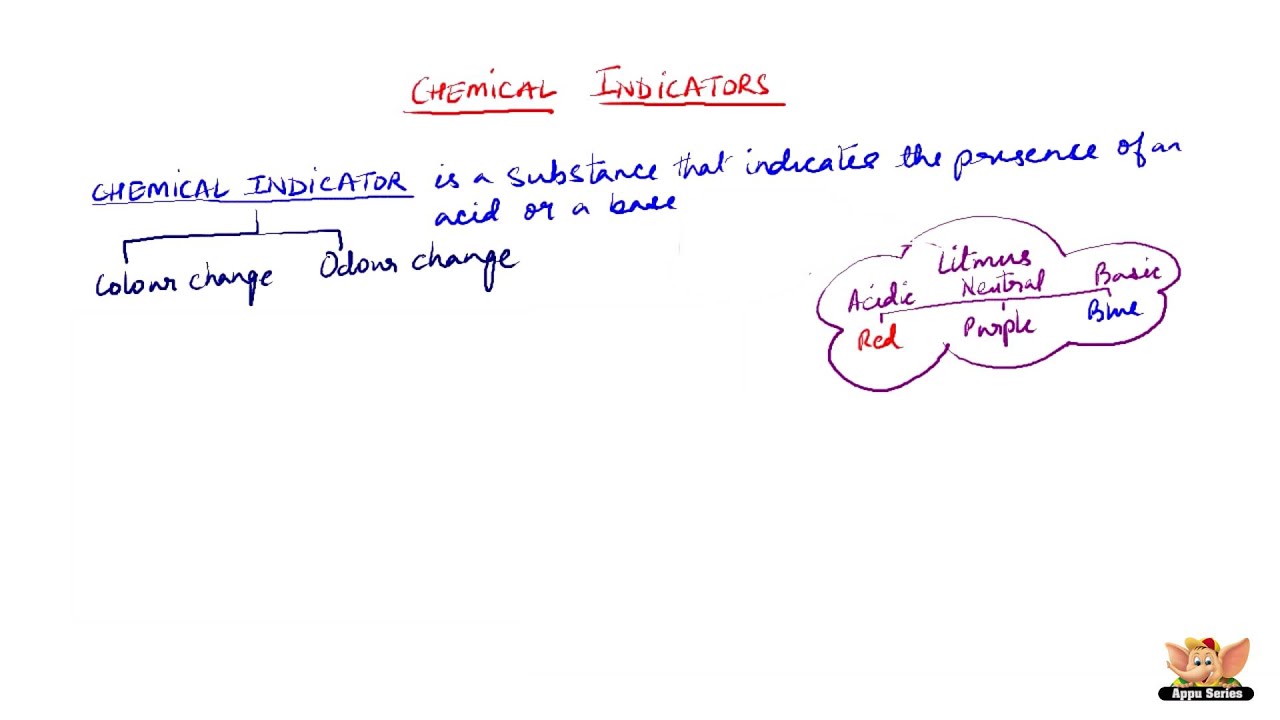 CHEMICAL INDICATORS
CHEMICAL INDICATOR is a substance that indicates the presence of an
acid or a base
Colour change Odour change
Litmus
Acidic Neutral Basic
Red Purple Blue
Appu Series